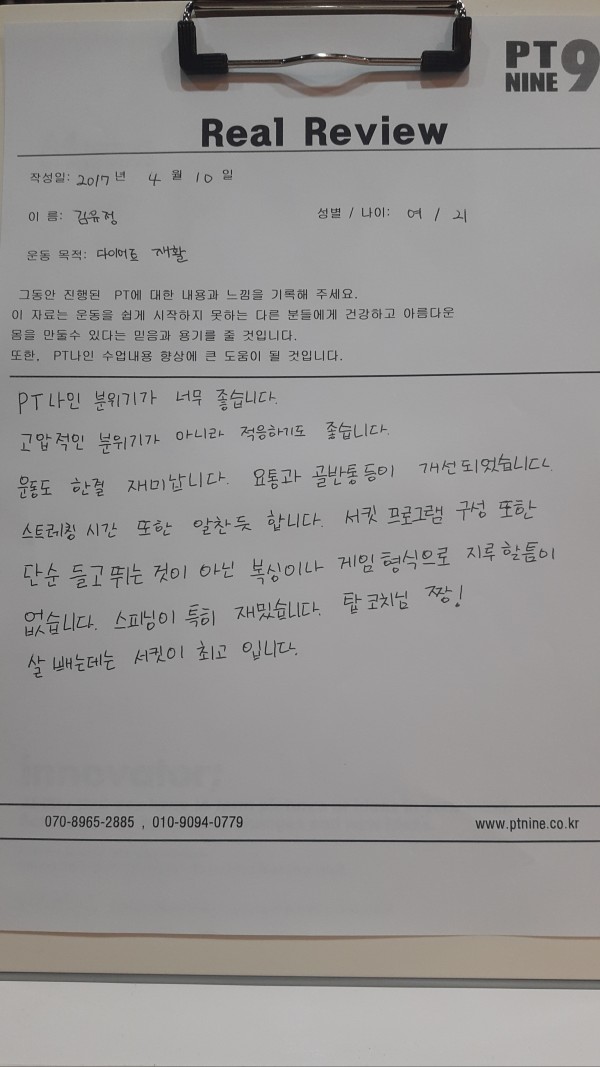 PT
NINE 9
Real Review
작성일: 2017 년 4 월 10 일
이 름: 김유정 성별 / 나이: 여 / 21
운동 목적: 다이어트 재활
그동안 진행된 PT에 대한 내용과 느낌을 기록해 주세요.
이 자료는 운동을 쉽게 시작하지 못하는 다른 분들에게 건강하고 아름다운
몸을 만들수 있다는 믿음과 용기를 줄 것입니다.
또한, PT나인 수업내용 향상에 큰 도움이 될 것입니다.
PT나인 분위기가 너무 좋습니다.
고압적인 분위기가 아니라 적응하기도 좋습니다.
운동도 한결 재미납니다. 요통과 골반통등이 개선되었습니다.
스트레칭 시간 또한 알찬듯 합니다. 서킷 프로그램 구성 또한
단순 들고 뛰는 것이 아닌 복싱이나 게임 형식으로 지루할틈이
없습니다. 스피닝이 특히 재밌습니다. 탑코치님 짱!
살 빼는데는 서킷이 최고 입니다.
070-8965-2885 , 010-9094-0779 www.ptnine.co.kr